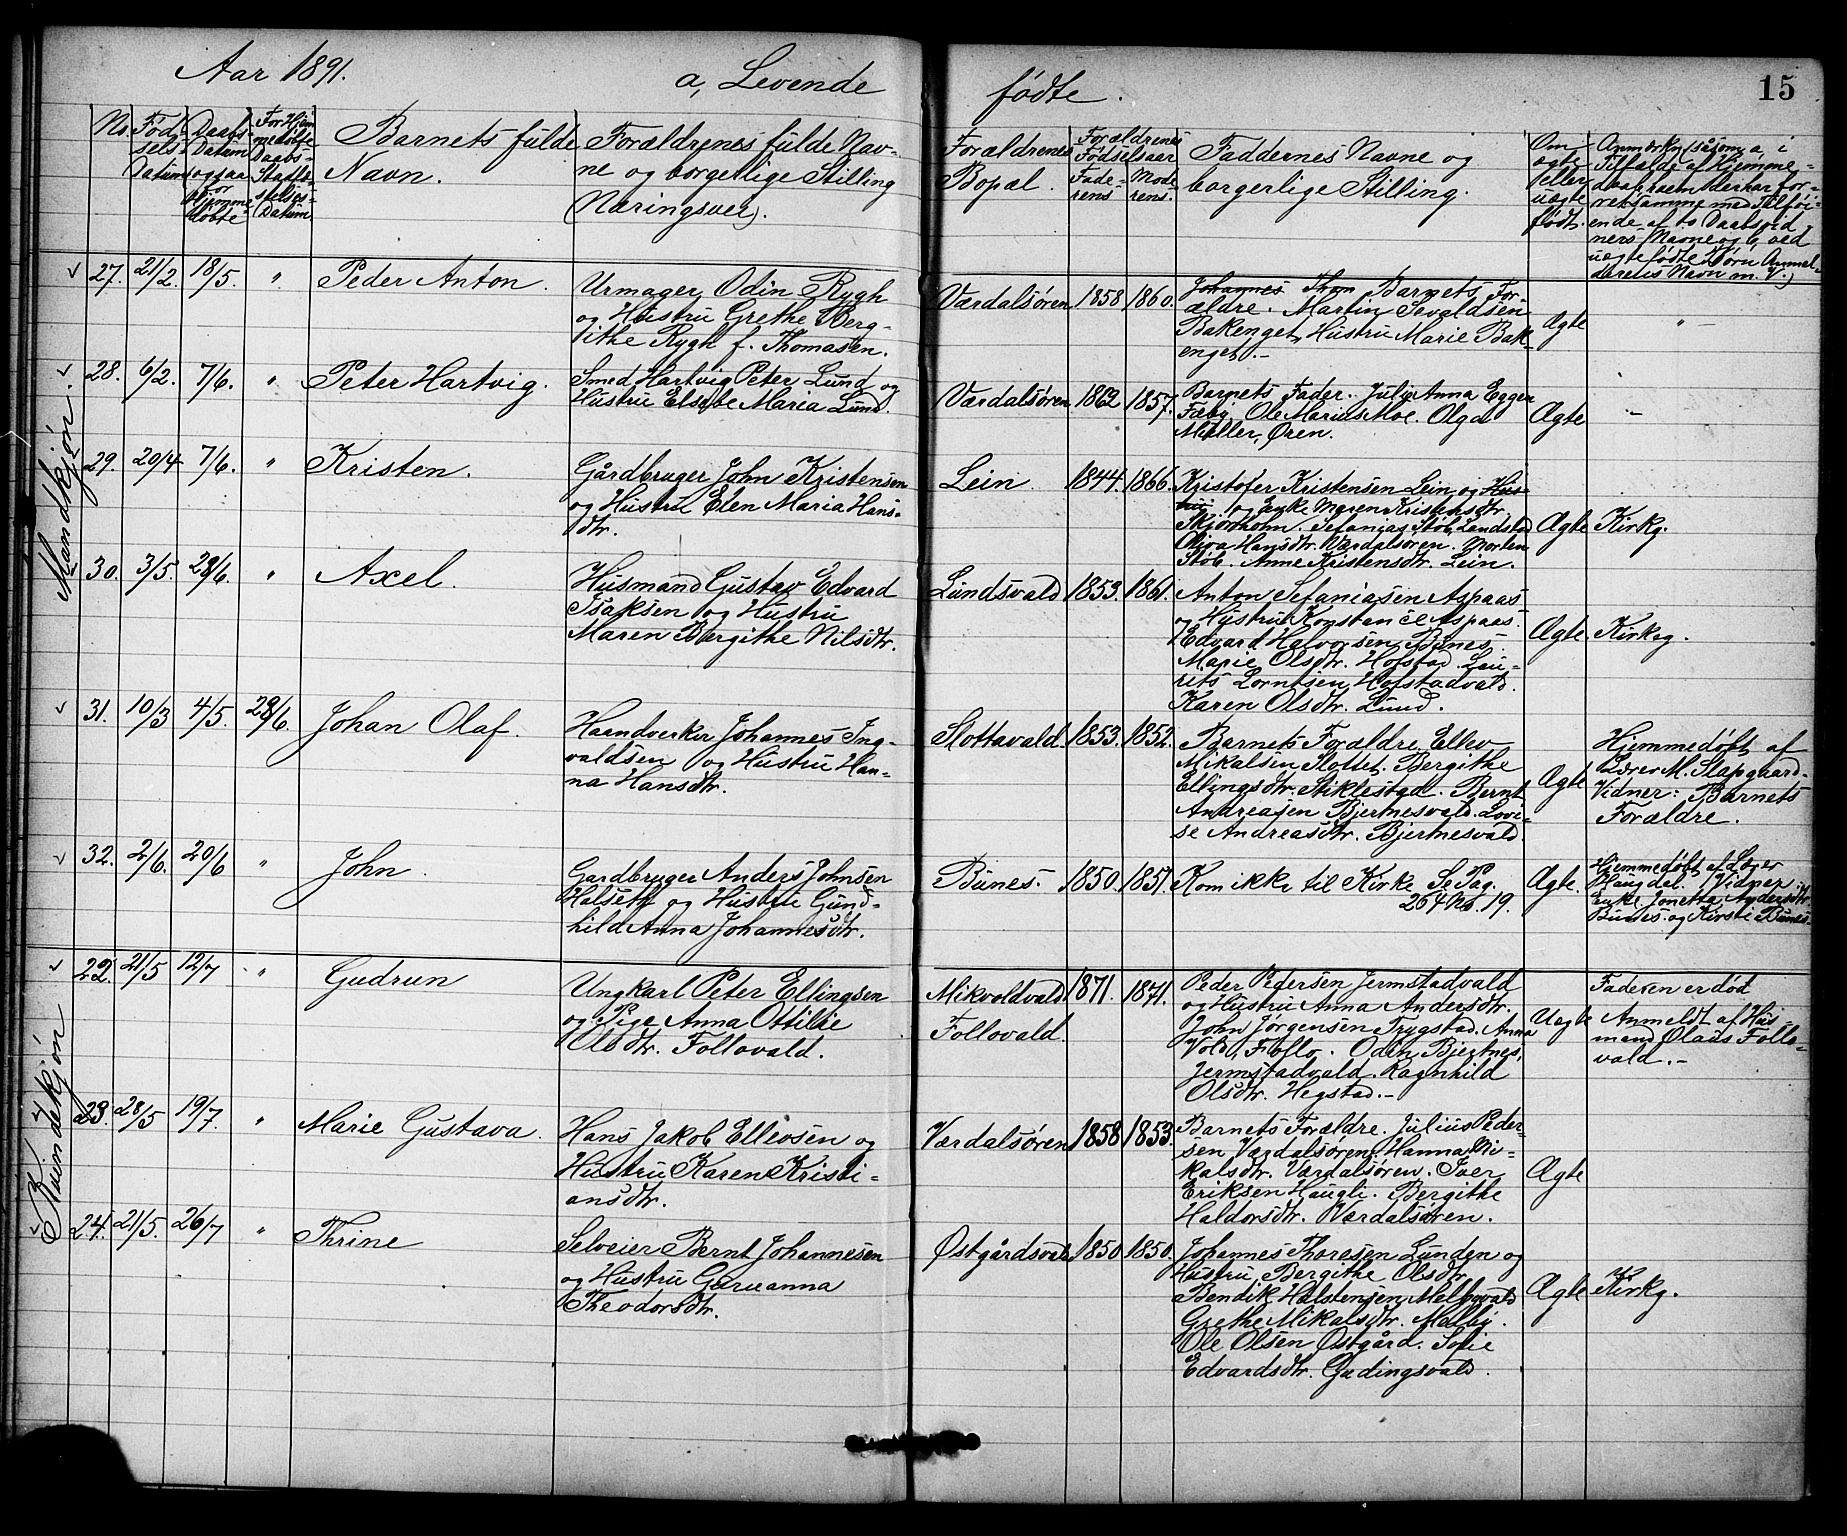 Aar 1891. a, Levende fødte. 15
No. Fødsels Datum
Daabs-Datum ogsaa for hjemmedøbte
For Hjemmedøbte Daabs-Stadfæstelses-Datum
Barnets fulde Navn.
Forældrenes fulde Navne og borgerlige Stilling (Næringsvei).
Forældrenes Bopæl.
Forældrenes Fødselsaar Faderens Moderens.
Faddernes Navne og borgerlige Stilling.
Om ægte eller uægte født.
Anmærkn. (såsom a, i
Tilfælde af Hjemme-
daab hvem der har for-
rettet samme med Tilføi-
ende af to Daabsvid
ners Navne og b, ved
uægte fødte Børn Anmel-
derens Navn m. V.)
Mandkjøn.
27. 21/2. 18/5. " Peder Anton.
Urmager Odin Rygh
og Hustru Grethe Berg-
ithe Rygh f. Thomasen.
Værdalsøren 1858 1860.
Johannes Thom Barnets For-
ældre. Martin Sevaldsen
Bakenget, Hustru Marie Bak-
enget.-
Ægte " -
28. 6/2. 7/6. " Peter Hartvig.
Smed Hartvig Peter Lund og
Hustru Elsebe Maria Lund.
Værdalsøren 1862 1857.
Barnets Fader. Julie Anna Eggen
Fæby. Ole Marius Moe. Olga
Müller, Øren.
Ægte -
29. 20/4 7/6. " Kristen.
Gårdbruger John Kristensen
og Hustru Elen Maria Hans-
dtr.
Lein 1844. 1866.
Kristofer Kristensen Lein og Hus-
tru og Enke Maren Kristensdtr.
Skjørholm. Sefanias Stob, Landstad
Oliva Hansdtr. Værdalsøren. Morten
Stob. Anne Kristensdtr. Lein.
Ægte Kirkg.
30. 3/5. 28/6. " Axel.
Husmand Gustav Edvard
Isaksen og Hustru
Maren Bergithe Nilsdtr.
Lundsvald 1853. 1861.
Anton Sefaniasen Aspaas
og Hustru Konstance Aspaas.
Edvard Halvorsen Bunes.
Marie Olsdtr. Hofstad. Lau-
rits Lorntsen Hofstadvald.
Karen Olsdtr. Lund.
Ægte Kirkeg.
31. 10/3 4/5. 28/6. Johan Olaf.
Haandverker Johannes Ing-
valdsen og Hustru Han-
na Hansdtr.
Slottavald. 1853. 1852.
Barnets Forældre, Ellev
Mikalsen Slottet. Bergithe
Ellingsdtr. Stiklestad. Bernt
Andreasen Bjertnesvald. Lovi-
se Andreasdtr. Bjertnesvald.
Ægte
Hjemmedøbt af
Lærer M. Slapgaard-
Vidner: Barnets
Forældre.
32. 2/6. 20/6 " John.
Gardbruger Anders Johnsen
Halseth og Hustru Gund-
hild Anna Johannesdtr.
Bunes. 1850. 1851.
Kom ikke til Kirke Se Pag.
264 No. 19.
Ægte.
Hjemmedøbt af Lærer
Haugdal. Vidner:
Enke Jonetta Andersdtr.
Bunes. og Kirsti Bunes
Kvindekjøn
22. 21/5 12/7 " Gudrun
Ungkarl Peter Ellingsen
og Pige Anna Ottilie
Olsdtr. Follovald.
Mikvoldvald
Follovald.
1871. 1871.
Peder Pedersen Jermstadvald
og Hustru Anna Andersdtr.
John Jørgensen Trygstad. Anna
Vold, Floflo. Odin Bjertnes,
Jermstadvald. Ragnhild
Olsdtr. Hegstad.-
Uægte
Faderen er død
Anmeldt af Hus-
mand Olaus Follo-
vald.-
23. 28/5 19/7. " Marie Gustava.
Hans Jakob Ellevsen og
Hustru Karen Kristi-
ansdtr.
Værdalsøren 1858 1853.
Barnets Forældre. Julius Peder-
sen Værdalsøren. Hanna Mi-
kalsdtr. Værdalsøren. Iver
Eriksen Haugli. Bergithe
Haldorsdtr. Værdalsøren.
Ægte
24. 21/5. 26/7 " Thrine
Selveier Bernt Johannesen
og Hustru Gjeruanna
Theodorsdtr.
Østgårdsvald 1850. 1850.
Johannes Thoresen Lunden og
Hustru Bergithe Olsdtr.
Bendik Halstensen Melbyvald
Grethe Mikalsdtr. Melby.
Ole Olsen Østgård. Sofie
Edvardsdtr. Gudingsvald.
Ægte Kirkg.